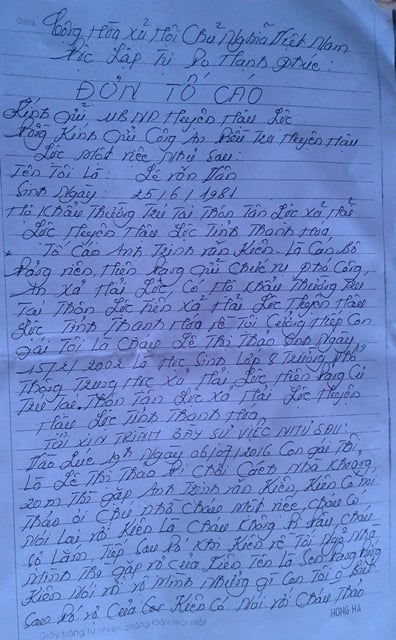 Cộng Hòa Xã Hội Chủ Nghĩa Việt Nam
Độc Lập Tự Do Hạnh Phúc:
ĐƠN TỐ CÁO
Kính Gửi, UBND Huyện Hậu Lộc
Đồng Kính Gửi Công An Điều Tra Huyện Hậu
Lộc, một việc Như Sau:
Tên Tôi Là: Lê Văn Dân
Sinh Ngày: 25/6/1981
Hộ Khẩu Thường Trú Tại Thôn Tân Lộc Xã Hải
Lộc Huyện Hậu Lộc Tỉnh Thanh Hóa
Tố Cáo Anh Trịnh Văn Kiên. Là Cán Bộ
Đảng viên, Hiện Đang Giữ Chức vụ Phó Công,
An Xã Hải Lộc, Có Hộ Khẩu Thường Trú
Tại Thôn Lộc Tiên Xã Hải Lộc Huyện Hậu
Lộc Tỉnh Thanh Hóa về Tội Cưỡng Hiếp Con
gái Tôi Là Cháu Lê Thị Thảo Sinh Ngày
15/2/2002 Là Học Sinh Lớp 8 Trường Phổ
Thông Trung Học Xã Hải Lộc, Hiện Đang Cư
Trú Tại. Thôn Tân Lộc Xã Hải Lộc Huyện
Hậu Lộc Tỉnh Thanh Hóa,
TÔI XIN TRÌNH BÀY SỰ VIỆC NHƯ SAU:
Vào Lúc Ngày 06/07/2016 Con gái Tôi,
Là Lê Thị Thảo Đi Chơi Cách Nhà Khoảng,
20m Thì gặp Anh Trịnh Văn Kiên, Kiên Có nói
Thảo ơi Chú Nhờ Cháu Một việc, Cháu Có
Nói Lại với Kiên Là Cháu Không Đi đâu, Cháu
Sợ Lắm, Tiếp Sau Đó Khi Kiên về Tới Ngõ Nhà
Mình Thì gặp vợ của Kiên Tên Là Sen Đang Đứng
Kiên Nói với vợ Mình Nhưng gì Con Tôi ko Biết
Sau Đó vợ Của Kiên Có Nói với Cháu Thảo
Giấy trắng tự nhiên chống lóa - mỏi mắt
HONG HA